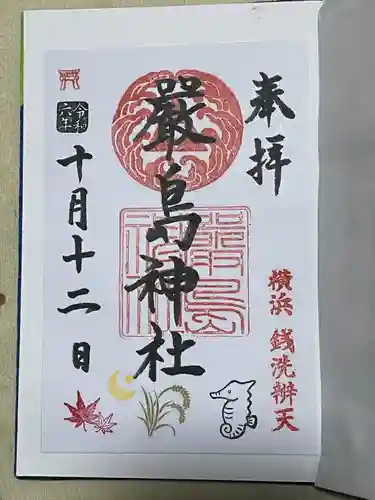 奉拝
横浜 銭洗辨天
嚴島神社
令和
六年
十月十二日